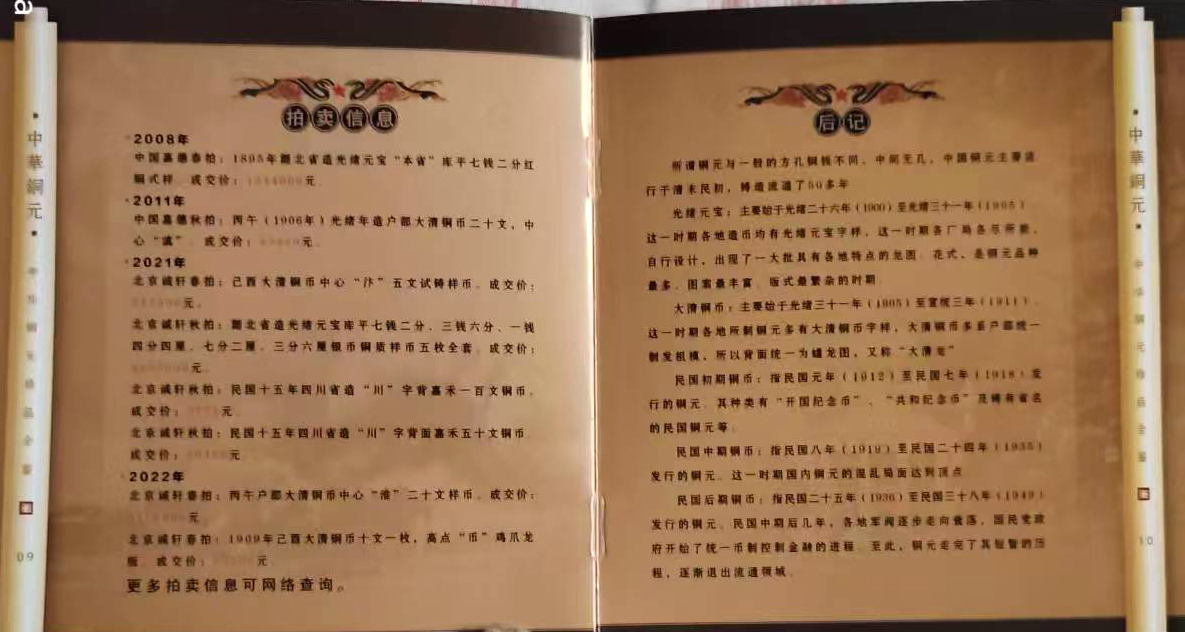 a
中華銅元
09
拍卖信息
2008年
中国嘉德春拍：1895年湖北省造光绪元宝“本省”库平七钱二分红
铜式样。成交价：元。
2011年
中国嘉德秋拍：丙午（1906年）光绪年造户部大清铜币二十文，中
心“滇”。成交价：元。
2021年
北京诚轩春拍：己酉大清铜币中心“汴”五文试铸样币。成交价：
元。
北京诚轩秋拍：湖北省造光绪元宝库平七钱二分、三钱六分、一钱
四分四厘、七分二厘、三分六厘银币铜质样币五枚全套。成交价：
元。
北京诚轩秋拍：民国十五年四川省造“川”字背嘉禾一百文铜币。
成交价：元。
北京诚轩秋拍：民国十五年四川省造“川”字背面嘉禾五十文铜币。
成交价：元
2022年
北京诚轩春拍：丙午户部大清铜币中心“淮”二十文样币。成交价：
元。
北京诚轩秋拍：1909年己酉大清铜币十文一枚，高点“币”鸡爪龙
版。成交价：元。
更多拍卖信息可网络查询。
后记
所谓铜元与一般的方孔铜钱不同，中间无孔，中国铜元主要流
行于清末民初，铸造流通了50多年
光绪元宝：主要始于光绪二十六年（1900）至光绪三十一年（1905）
这一时期各地造币均有光绪元宝字样，这一时期各厂局各尽所能，
自行设计，出现了一大批具有各地特点的龙图、花式，是铜元品种
最多、图案最丰富、版式最繁杂的时期
大清铜币：主要始于光绪三十一年（1905）至宣统三年（1911）、
这一时期各地所制铜元多有大清铜币字样，大清铜币多系户部统一
制发祖模，所以背面统一为蟠龙图，又称“大清龙”
民国初期铜币：指民国元年（1912）至民国七年（1918）发
行的铜元。其种类有“开国纪念币”、“共和纪念币”及稀有省名
的民国铜元等
民国中期铜币：指民国八年（1919）至民国二十四年（1935）
发行的铜元。这一时期国内铜元的混乱局面达到顶点
民国后期铜币：指民国二十五年（1936）至民国三十八年（1949）
发行的铜元。民国中期后几年，各地军阀逐步走向衰落，国民党政
府开始了统一币制控制金融的进程。至此，铜元走完了其短暂的历
程，逐渐退出流通领域。
中華銅元
10